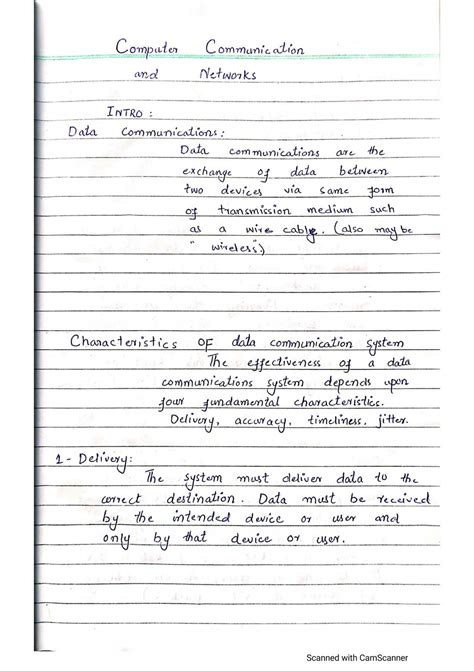 Computer Communication
and Networks
INTRO :
Data Communications :
Data communications are the
exchange of data between
two devices via same form
of transmission medium such
as a wire cable. (also may be
" wireless")
Characteristics OF data communication system
The effectiveness of a data
communications system depends upon
four fundamental characteristics.
Delivery, accuracy, timeliness, jitter.
1 - Delivery:
The system must deliver data to the
correct destination. Data must be received
by the intended device or user and
only by that device or user.
Scanned with CamScanner